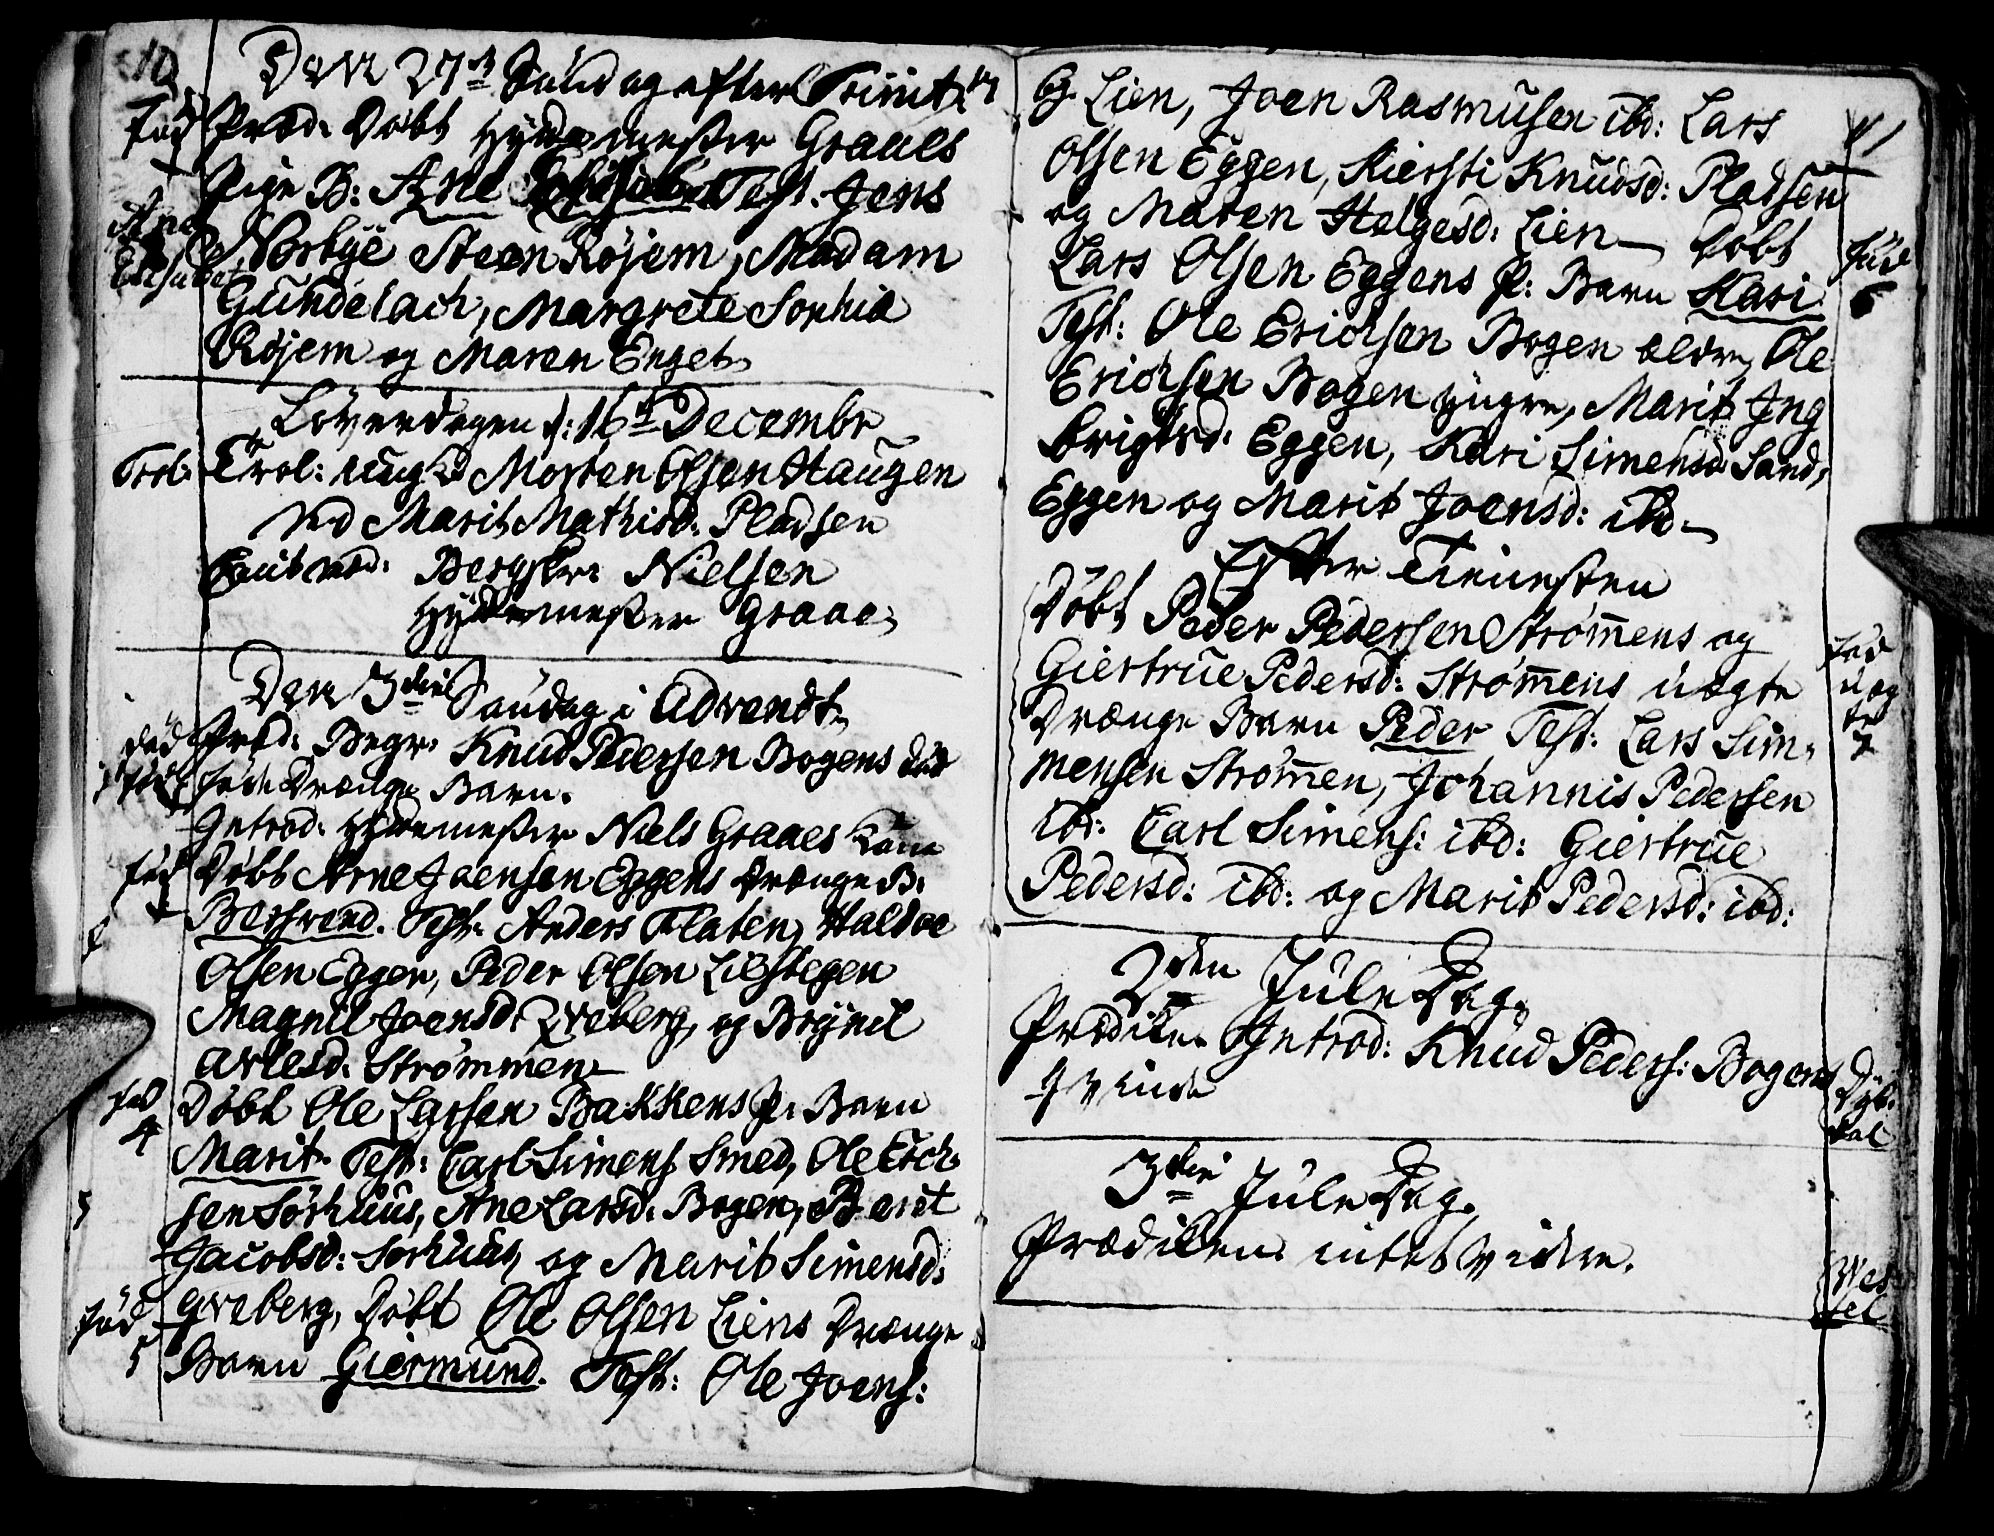 10
Den 27de Sùndag efter Trinit:
Fød Præd: Døbt Hÿttemester Graaes
Pige B: Ane Elisabet Test. Jens
Ane Elisabet
Norbye Steen Röjem, Madam
Gùndelach, Margrete Sophia
Röjem og Maren Enget
Löverdagen d: 16de Decembr
Trol: Trol: ùng K: Morten Olsen Haùgen
ved Marit Mathisd: Pladsen
Caut: Bergskr: Nielsen
Hÿttemester Graae
Den 3die Søndag i Advendt
død Præd: Begr: Knùd Pedersen Bogens død
fød fødte Drænge Barn.
Introd: Hÿttemester Niels Graaes Kone
fød Døbt Arne Joensen Eggens Drænge B:
Bersvend. Test: Anders Flaten, Haldoe
Olsen Eggen, Peder Olsen Liestegen
Magnil Joensd: Qveberg, og Brÿnil
Arlesd: Strømmen
fød Døbt Ole Larsen Bakkens p: Barn
4
Marit. Test: Carl Simens: Smed, Ole Erich-
sen Sörhùùs, Ane Larsd: Bogen, Beret
Jacobsd: Sørhùùs, og Marit Simensd:
Qveberg, Døbt Ole Olsen Liens Drænge
fød
5 Barn Giermùnd. Test: Ole Joens:
11
Lien, Joen Rasmùsen ibd: Lars
Olsen Eggen, Kiersti Knùdsd: Pladsen
og Maren Helgesd: Lien Døbt
Lars Olsen Eggens p: Barn Kari fød
6
Test: Ole Erichsen Bogen ældre, Ole
Erichsen Bogen ÿngre, Marit Ing
brigtsd: Eggen, Kari Simensd: Sand,
Eggen og Marit Joensd: ibd:
Efter Tienesten
Døbt Peder Pedersen Strøm̄ens og
Giertrùe Pedersd: Strøm̄ens ùægte fød ùæg
Drænge Barn Peder Test: Lars Sim- te 7
mensen Strøm̄en, Johannis Pedersen
ibd: Carl Simens: ibd: Giertrùe
Pedersd: ibd: og Marit Pedersd: ibd:
2den Jùle Dag.
Prædiken Introd: Knùd Peders: Bogens
Qvinde
3die Jùle Dag.
Prædiken intet videre.
Wes
sel